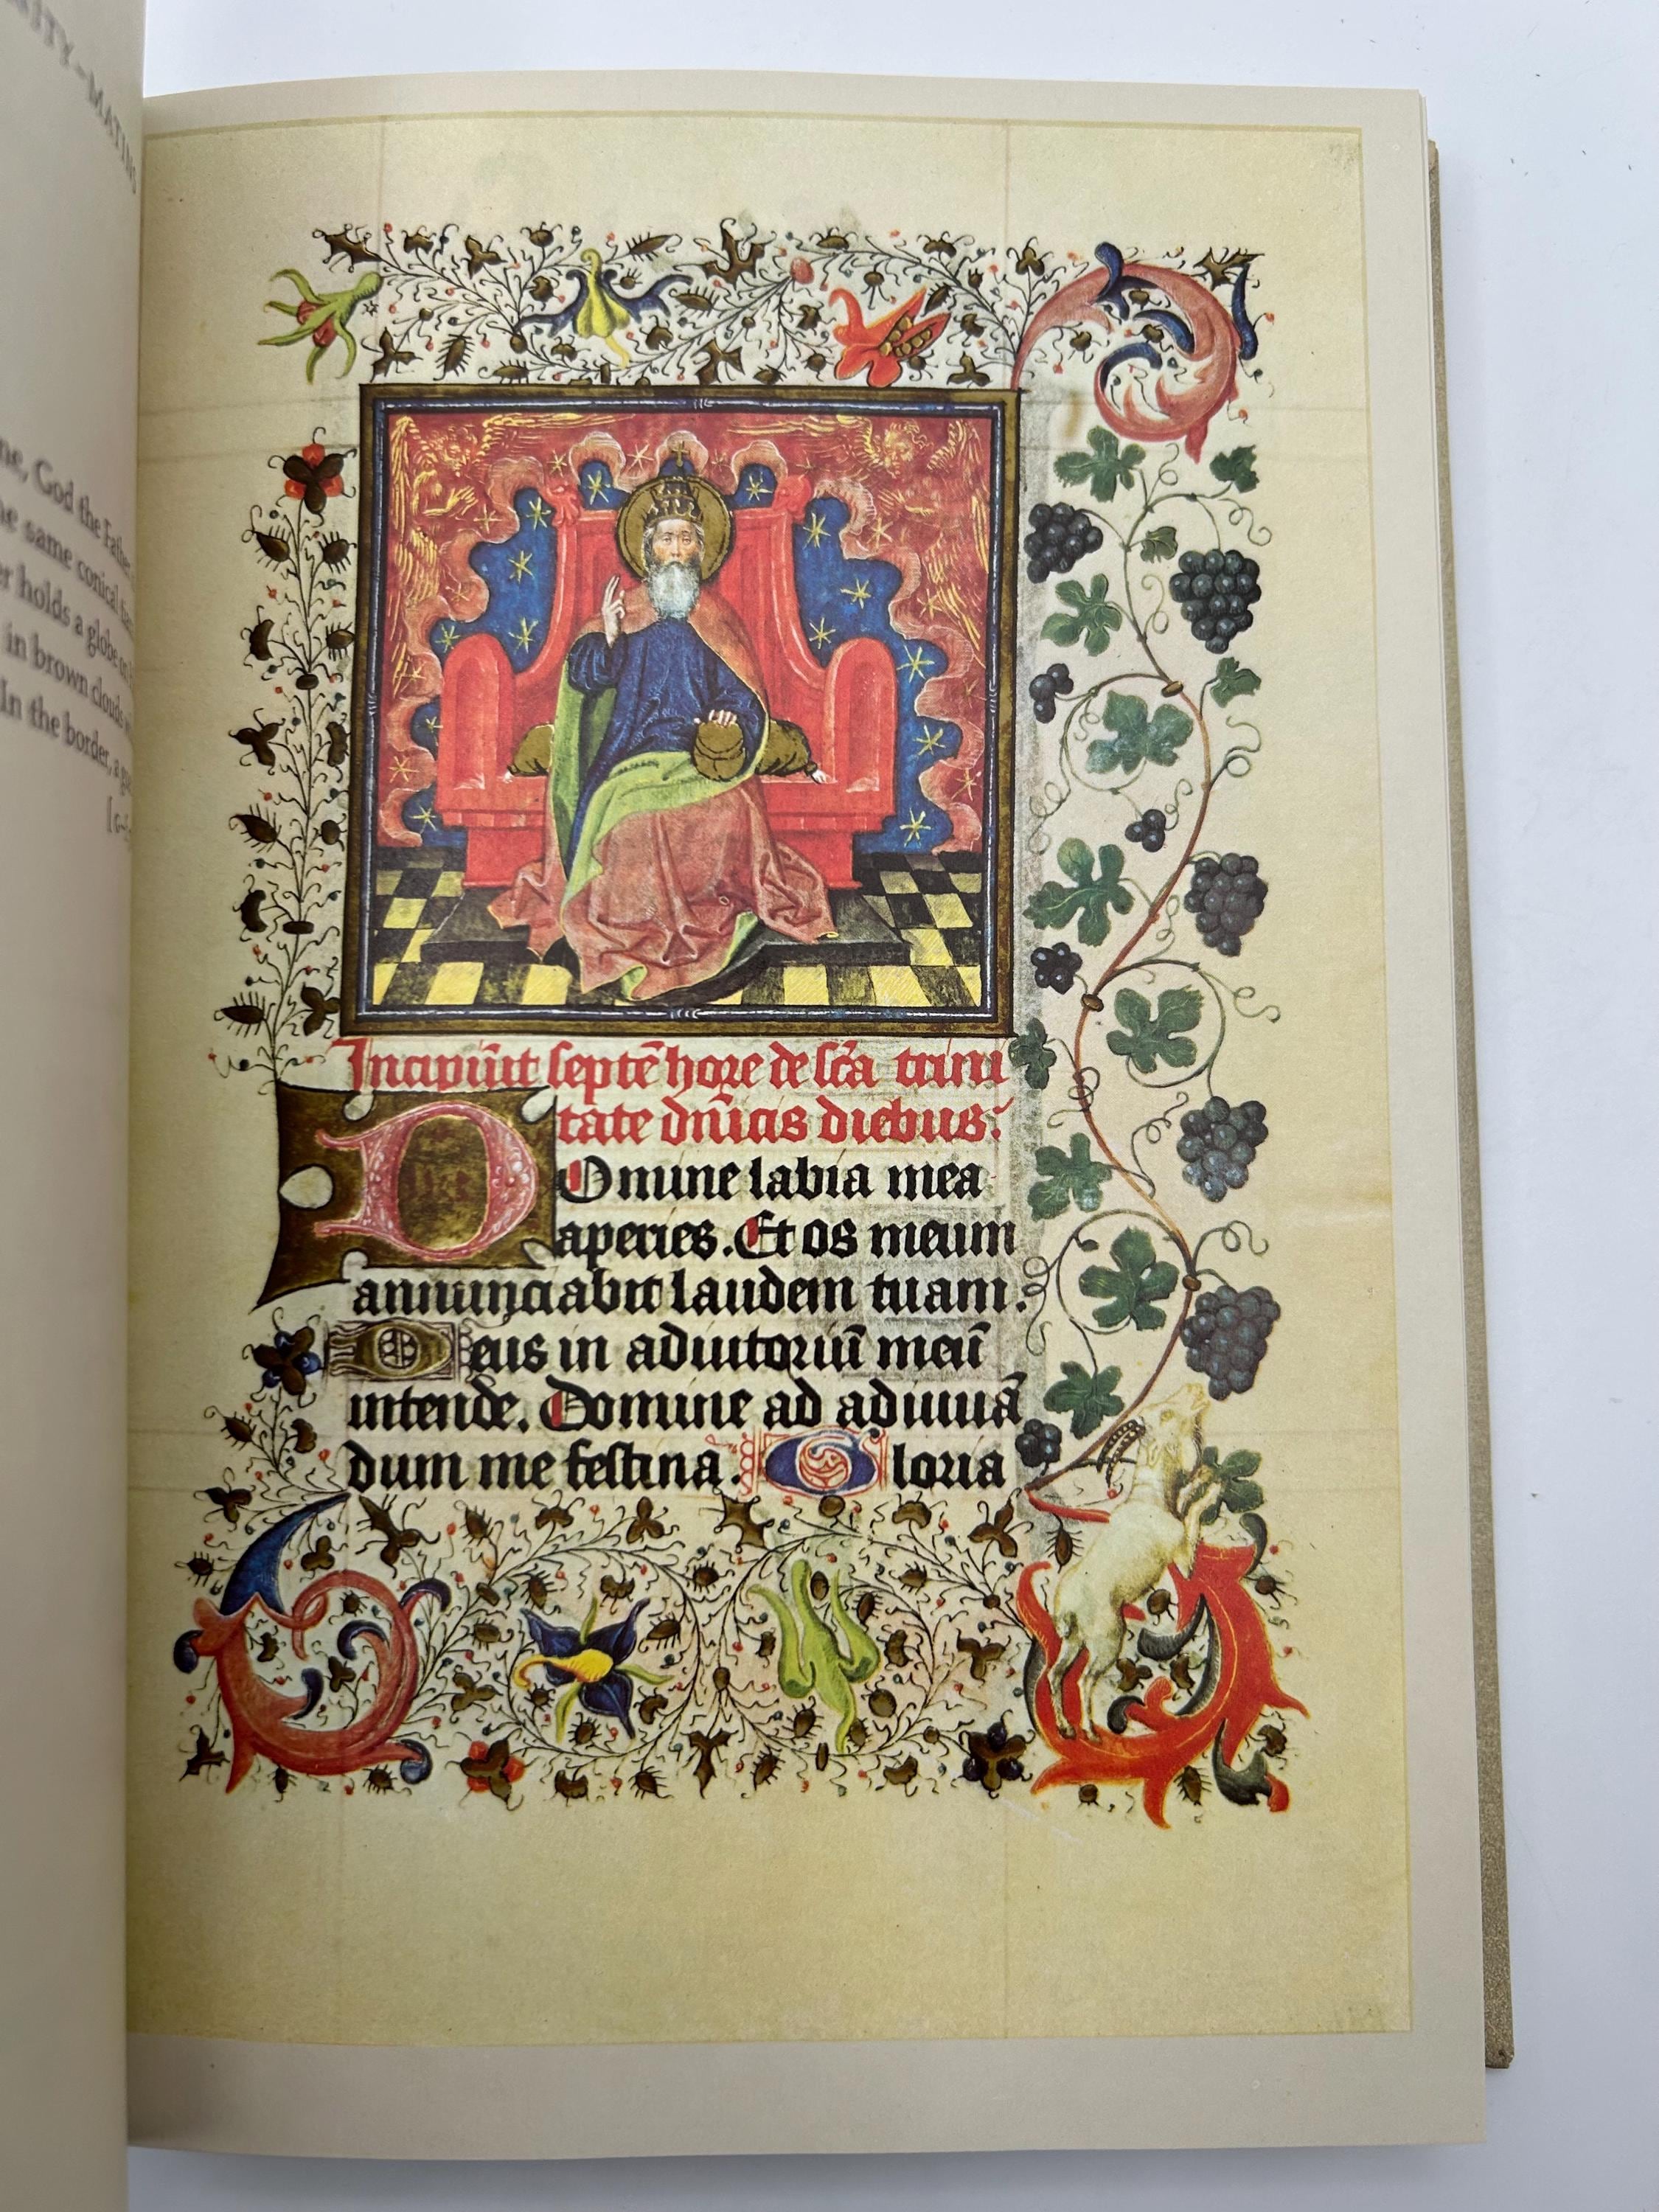 ITY–MATINS
ne, God the Father
he same conical tiara
er holds a globe on
in brown clouds w
In the border, a
Incipiūt septē hore de scā trini
tate dn̄icis diebus.
Domine labia mea
aperies. Et os meum
annunciabit laudem tuam.
Deus in adiutoriū meū
intende. Domine ad adiuuā
dum me festina. Gloria